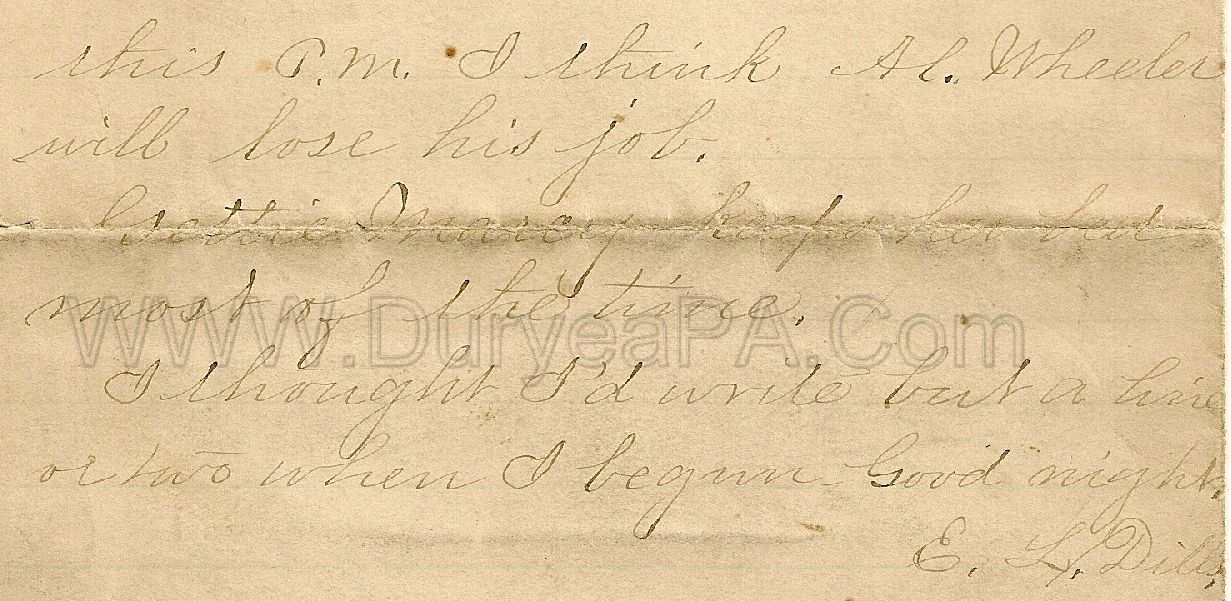 this P.M. I think Al. Wheeler
will lose his job.
Gettie Marcy keeps her bed
most of the time.
WWW.DuryeaPA.Com
I thought I'd write but a line
or two when I begun. Good night,
E. L. Dills,